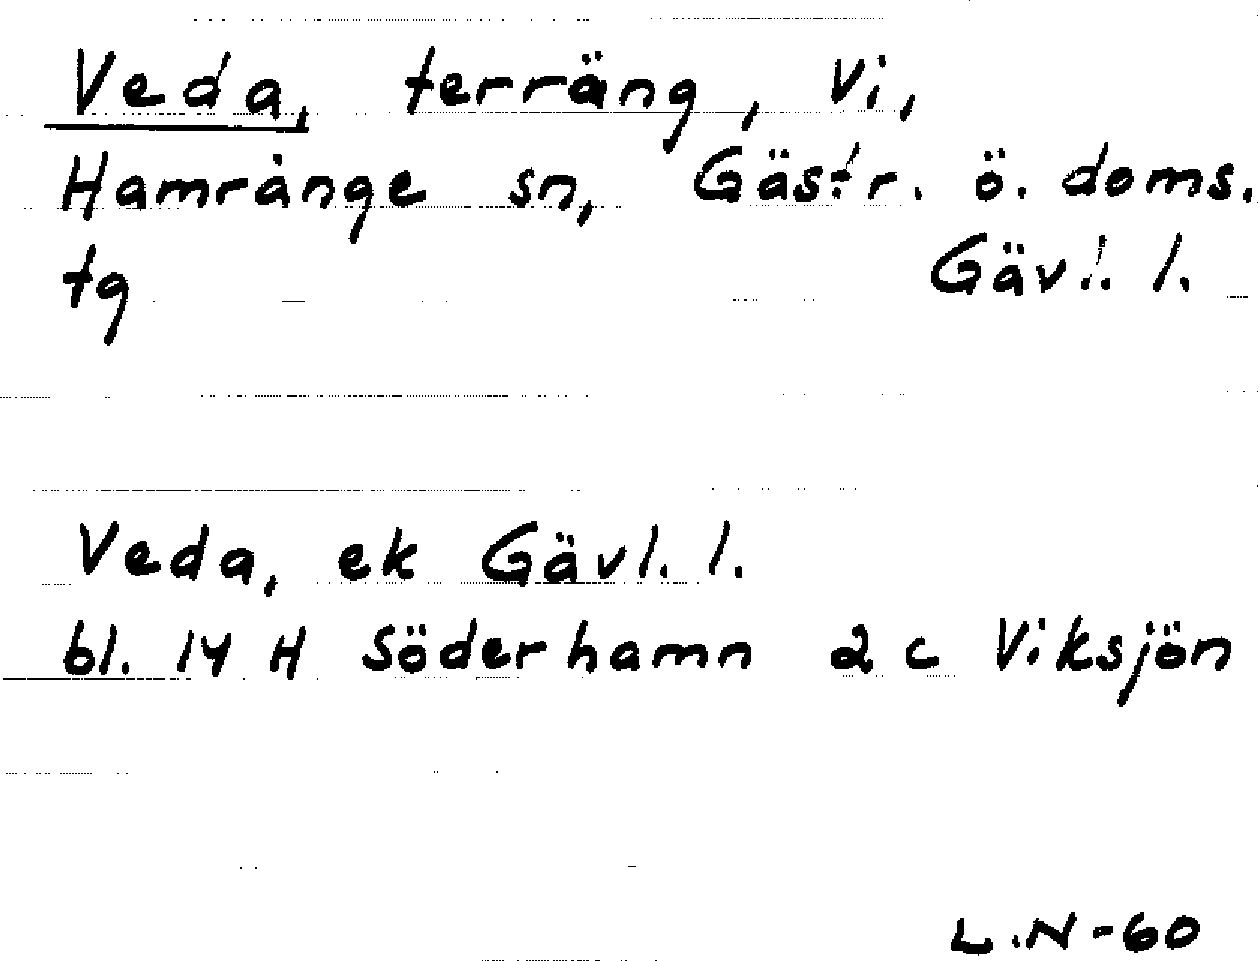 Veda, terräng, Vi,
Hamrånge sn, Gästr. ö. doms.
tg Gävl. l.
Veda, ek Gävl. l.
bl. 14 H Söderhamn 2 c Viksjön
L.N-60